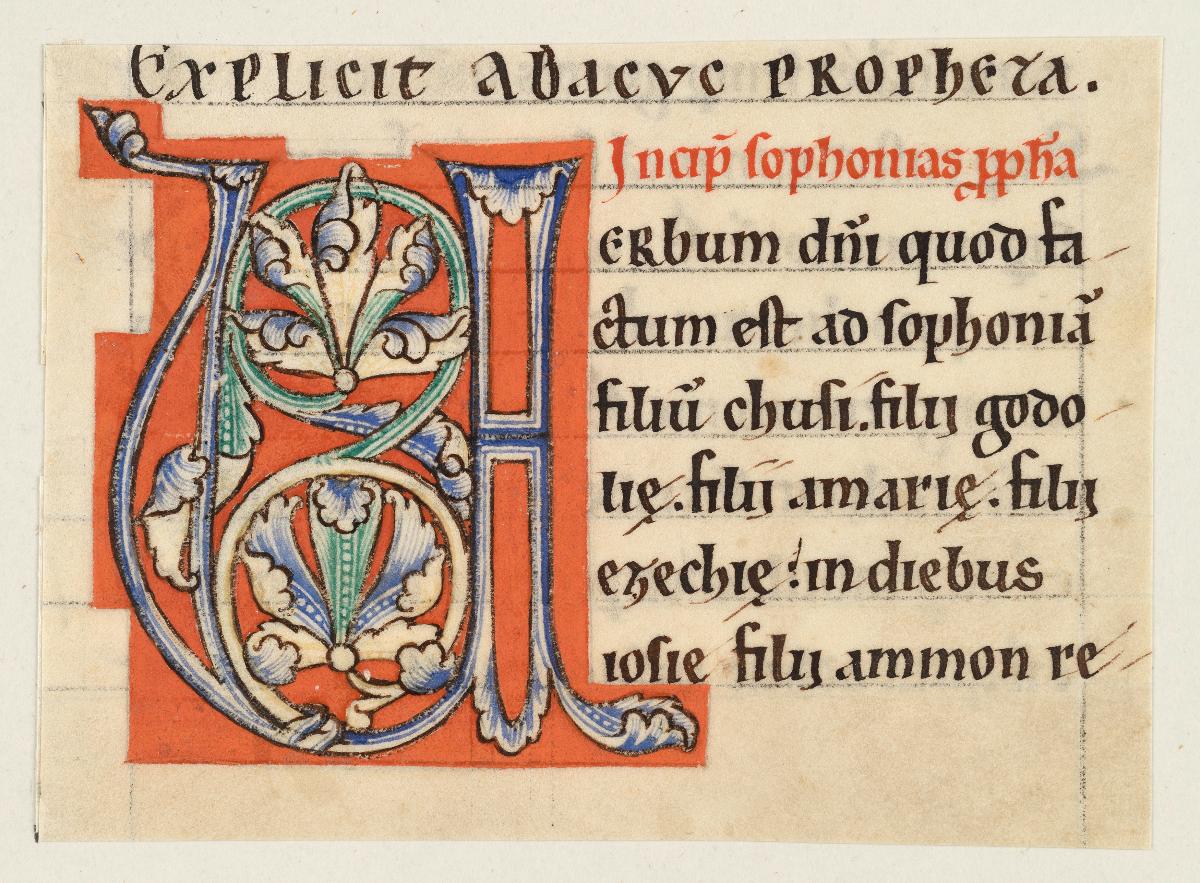 Explicit Abacvc propheta.
Incip̄ sophonias ꝓph̄a
VERbum dn̄i quod fa
ctum est ad sophoniā
filiū chusi. filij godo
lię. filij amarię. filij
ezechię: in diebus
iosie filij ammon re